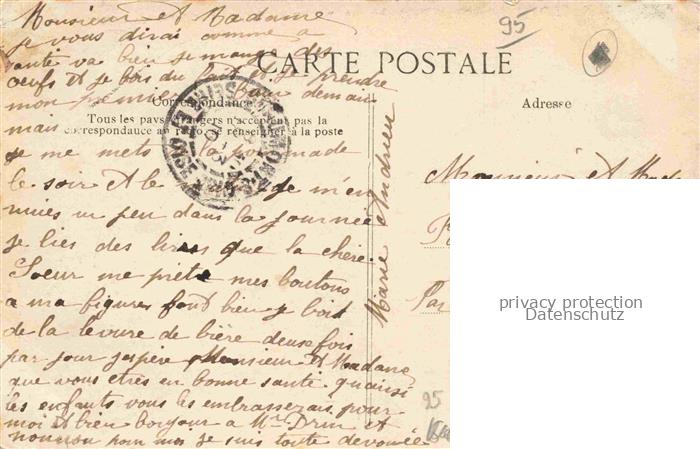 Monsieur et Madame
je vous dirai comme a
santé va bien je mange des
oeufs et je bois du lait et je prendre
mon premier bain demain
mais
je me mets la pommade
le soir et le je m'en
nuies un peu dans la journée
je lies des livres que la chère
Soeur me prête mes boutons
a ma figure font bien je bois
de la levure de bière deux fois
par jour j'espère Monsieur et Madame
que vous etres en bonne santé qu'ainsi
les enfants vous les embrasserais pour
moi et bien bonjour a Mr Drin et
nounou pour moi je suis toute dévouée
Marie Andrieu
CARTE POSTALE
Correspondance
Tous les pays étrangers n'acceptent pas la
correspondance au recto, se renseigner à la poste
Adresse
Monsieur et Mad
Par
95
95
privacy protection
Datenschutz